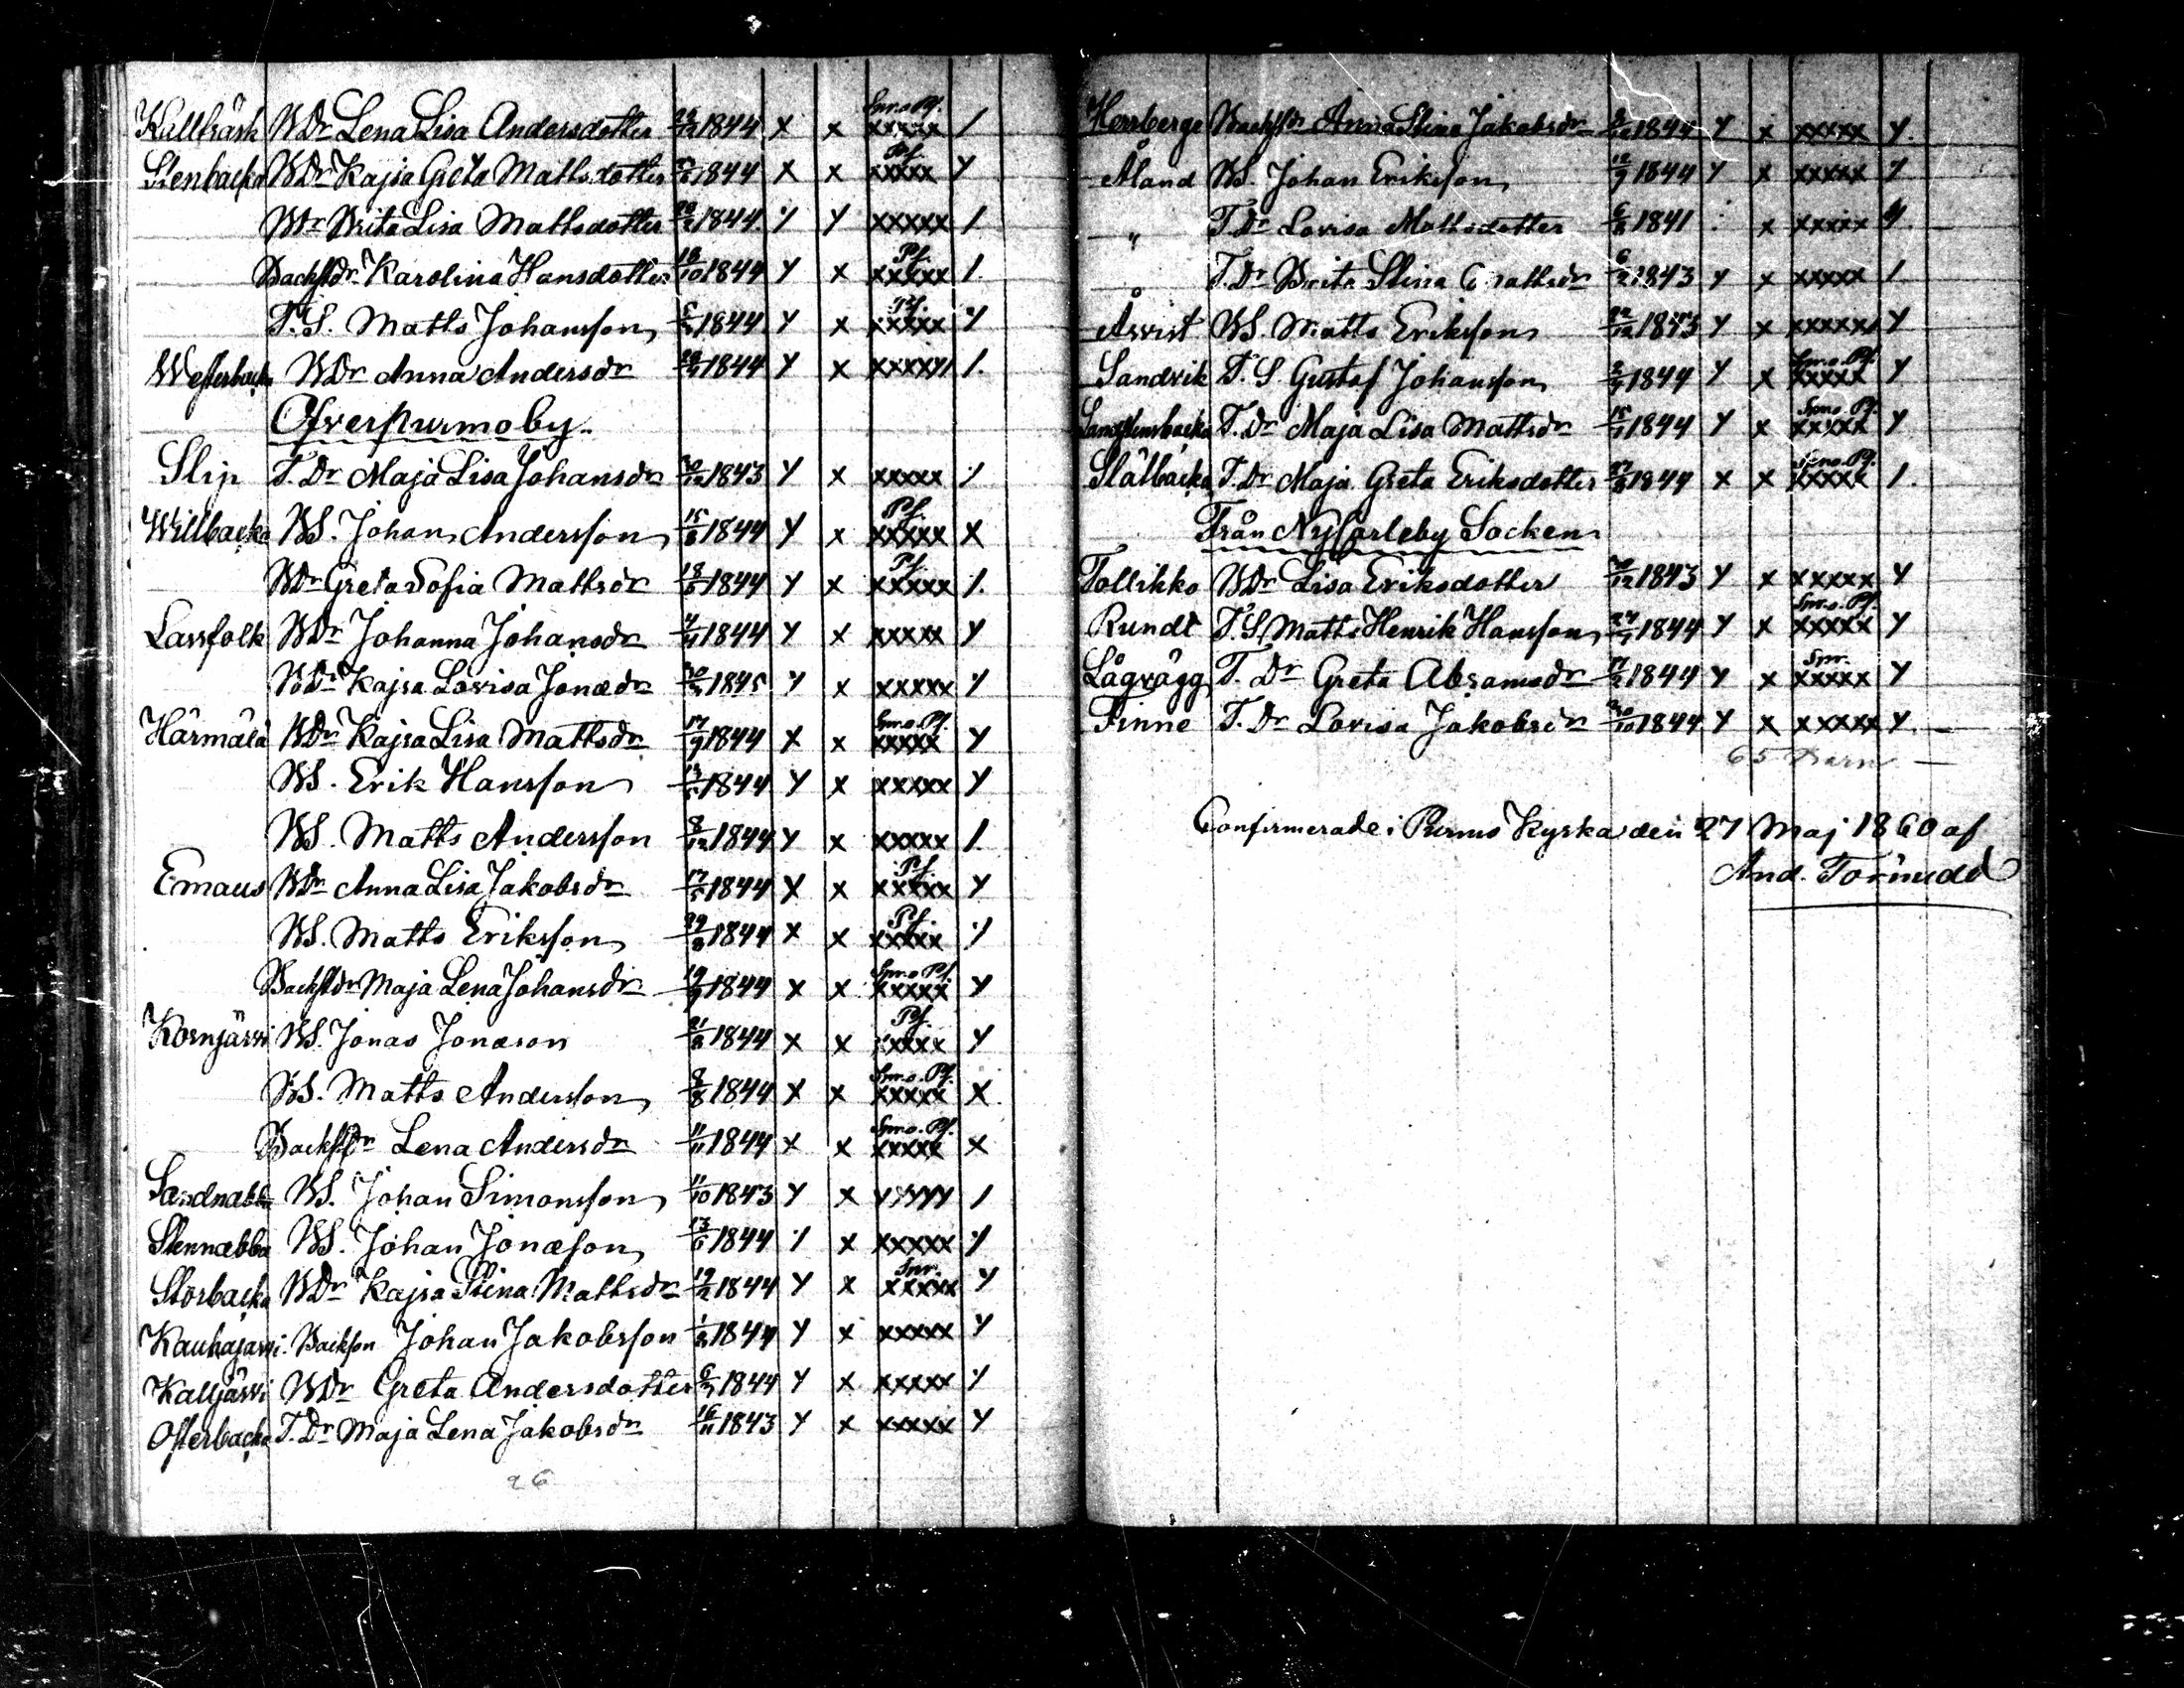 Kallträsk WDr Lena Lisa Andersdotter 1844 x x Spr. o. Pf. xxxxx /
Stenbacka WDr Kajsa Greta Mattsdotter 1844 x x Pf. xxxxx Y
WDr Brita Lisa Mattsdotter 1844 Y Y xxxxx /
Backstdr Karolina Hansdotter 1844 Y x Pf. xxxxx /.
T. S. Matts Johansson 1844 Y x Pf. xxxxx Y
Westerbacka WDr Anna Andersdr 1844 Y x xxxxY /.
Öfverpurmo by.
Slip T. Dr Maja Lisa Johansdr 30/12 1843 Y x xxxxx Y
Willbacka WS. Johan Andersson 15/6 1844 Y x Pf. xxxxx X
WDr Greta Sofia Mattsdr 1844 Y x Pf. xxxxx /.
Lassfolk WDr Johanna Johansdr 4/11 1844 Y x xxxxx Y
WDr Kajsa Lovisa Jonædr 1845 Y x xxxxx Y
Härmälä WDr Kajsa Lisa Mattsdr 17/9 1844 x x Spr. o. Pf. xxxxx Y
WS. Erik Hansson 1844 Y x xxxxx Y
WS. Matts Andersson 8/12 1844 Y x xxxxx /
Emaus WDr Anna Lisa Jakobsdr 17/5 1844 Y x Pf. xxxxx Y
WS. Matts Eriksson 1844 x x Pf. xxxxx Y
Backstdr Maja Lena Johansdr 19/9 1844 x x Spr. o. Pf. xxxxx Y
Kornjärwi WS. Jonas Jonæson 21/8 1844 x x Pf. xxxxx Y
WS. Matts Andersson 8/8 1844 x x Spr. o. Pf. xxxxx X.
Backstdr Lena Andersdr 11/11 1844 x x Spr. o. Pf. xxxxx X
Sandnabba WS. Johan Simonsson 11/10 1843 Y x YYYYY /
Stennabba WS. Johan Jonæson 13/6 1844 Y x xxxxx Y
Storbacka WDr Kajsa Stina Mattsdr 19/2 1844 Y x Spr. xxxxx Y
Kauhajarwi. Backson Johan Jakobsson 1844 Y x xxxxx Y
Kalljärwi WDr Greta Andersdotter 1844 Y x xxxxx Y
Österbacka T. Dr Maja Lena Jakobsdr 16/11 1843 Y x xxxxx Y
26
Herrberge Backstdr Anna Stina Jakobsdr 1844 Y x xxxxx Y.
Åland WS. Johan Eriksson 12/9 1844 Y x xxxxx Y
" T. Dr Lovisa Mattsdotter 6/8 1841 x xxxxx Y.
T. Dr Brita Stina Mattsdr 1843 Y x xxxxx /
Åsvist WS. Matts Eriksson 22/12 1843 Y x xxxxx Y
Sandvik T. S. Gustaf Johansson 1844 Y x Spr. o. Pf. xxxxx Y
T. Dr Maja Lisa Mattsdr 1844 Y x Spr. o. Pf. xxxxx Y
Slätbacka T. Dr Maja Greta Eriksdotter 1844 x x Spr. o. Pf. xxxxx /.
Från NyCarleby Socken
Tollikko WDr Lisa Eriksdotter 1843 Y x xxxxx Y
Rundt T. S. Matts Henrik Hansson 1844 Y x Spr. o. Pf. xxxxx Y
Lågvägg T. Dr Greta Abramsdr 17/2 1844 Y x Spr. xxxxx Y
Finne T. Dr Lovisa Jakobsdr 1844 Y x xxxxx Y.
65 Barn
Confirmerade i Purmo Kyrka den 27 Maj 1860 af
And. Törnudd